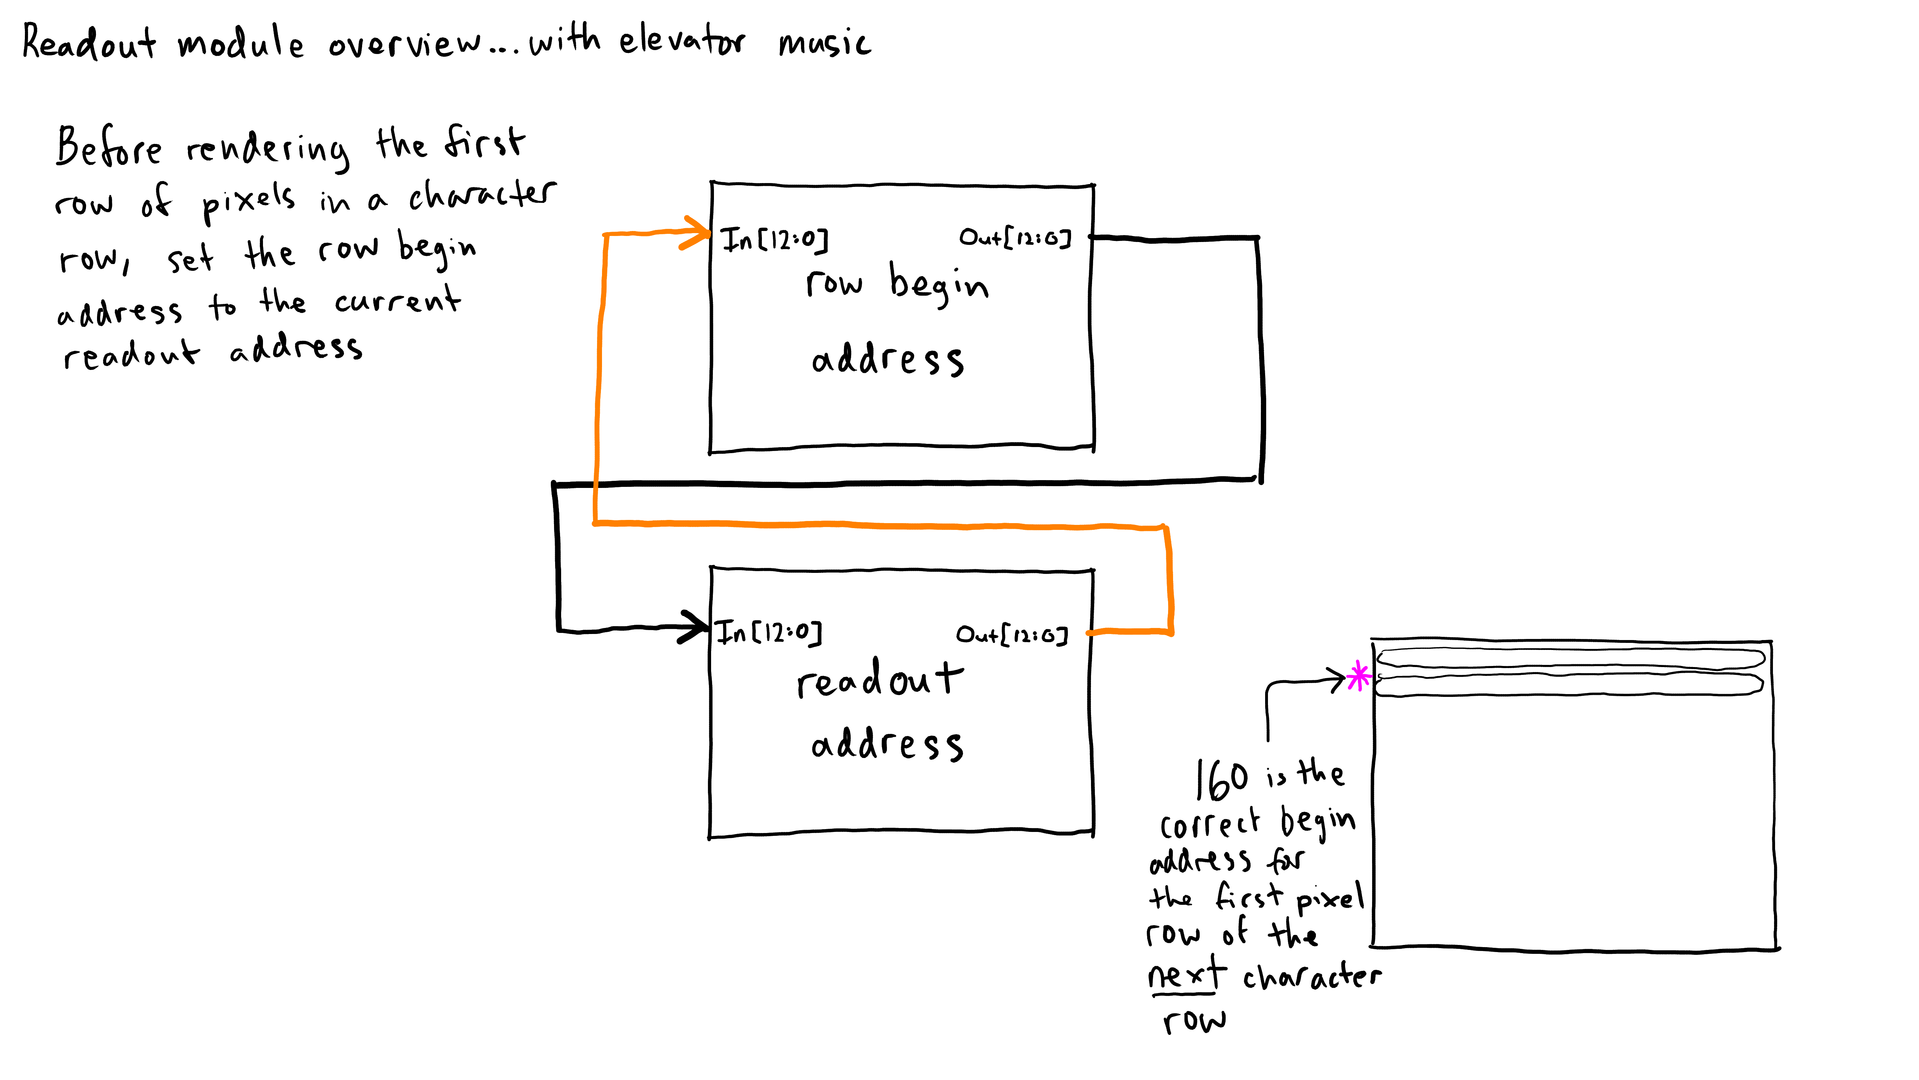 Readout module overview...with elevator music
Before rendering the first
row of pixels in a character
row, set the row begin
address to the current
readout address
In[12:0] Out[12:0]
row begin
address
In[12:0] Out[12:0]
readout
address
160 is the
correct begin
address for
the first pixel
row of the
next character
row